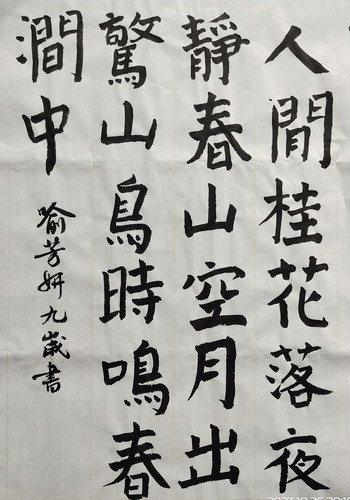 人間桂花落夜
靜春山空月出
驚山鳥時鳴春
澗中
喻芳妍九歲書